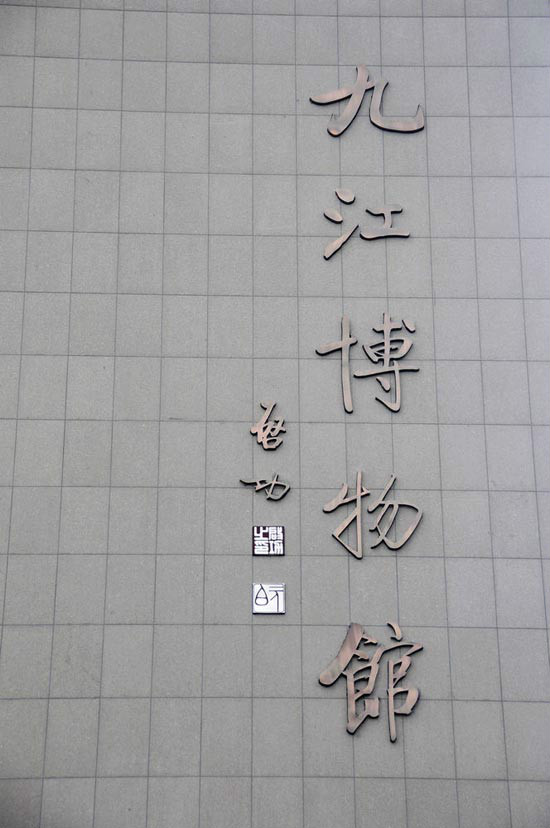 九江博物館
啓功